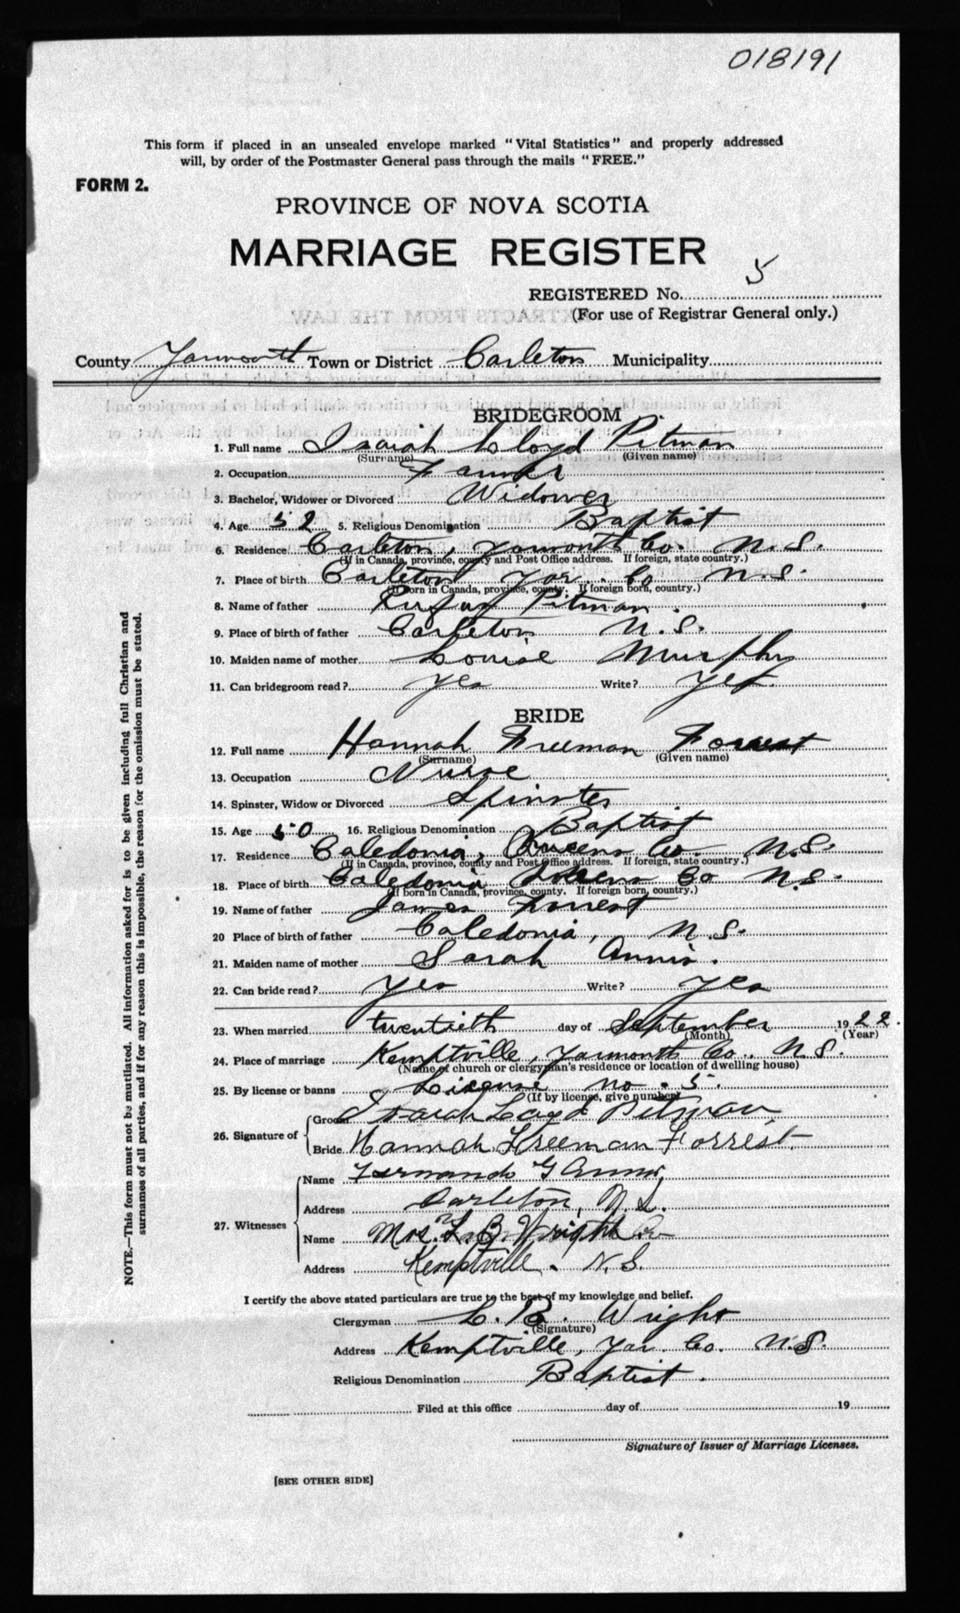 018191
This form if placed in an unsealed envelope marked "Vital Statistics" and properly addressed
will, by order of the Postmaster General pass through the mails "FREE."
FORM 2.
PROVINCE OF NOVA SCOTIA
MARRIAGE REGISTER
REGISTERED No. 5
(For use of Registrar General only.)
County Yarmouth Town or District Carleton Municipality
BRIDEGROOM
1. Full name Isaiah Lloyd Pitman
(Surname) (Given name)
2. Occupation Farmer
3. Bachelor, Widower or Divorced Widower
4. Age 52 5. Religious Denomination Baptist
6. Residence Carleton, Yarmouth Co. N.S.
(If in Canada, province, county and Post Office address. If foreign, state country.)
7. Place of birth Carleton Yar. Co N.S.
(If born in Canada, province, county. If foreign born, country.)
8. Name of father Rufus Pitman.
9. Place of birth of father Carleton N.S.
10. Maiden name of mother Louise Murphy
11. Can bridegroom read? yes Write? yes
BRIDE
12. Full name Hannah Freeman Forrest
(Surname) (Given name)
13. Occupation Nurse
14. Spinster, Widow or Divorced Spinster
15. Age 50 16. Religious Denomination Baptist
17. Residence Caledonia, Queens Co. N.S.
(If in Canada, province, county and Post Office address. If foreign, state country.)
18. Place of birth Caledonia Queens Co N.S.
(If born in Canada, province, county. If foreign born, country.)
19. Name of father James Forrest
20 Place of birth of father Caledonia, N.S.
21. Maiden name of mother Sarah Annis.
22. Can bride read? Yes Write? yes
23. When married twentieth day of September 1922.
(Month) (Year)
24. Place of marriage Kemptville, Yarmouth Co., N.S.
(Name of church or clergyman's residence or location of dwelling house)
25. By license or banns License no. 5.
(If by license, give number)
26. Signature of Groom Isaiah Loyd Pitman
Bride Hannah Freeman Forrest
27. Witnesses
Name G
Address Carleton, N.S.
Name Mrs. L. B. Wright
Address Kemptville. N.S.
I certify the above stated particulars are true to the best of my knowledge and belief.
Clergyman L. B. Wright
(Signature)
Address Kemptville, Yar. Co. N.S.
Religious Denomination Baptist.
Filed at this office day of 19
Signature of Issuer of Marriage Licenses.
[SEE OTHER SIDE]
NOTE.—This form must not be mutilated. All information asked for is to be given including full Christian and
surnames of all parties, and if for any reason this is impossible, the reason for the omission must be stated.